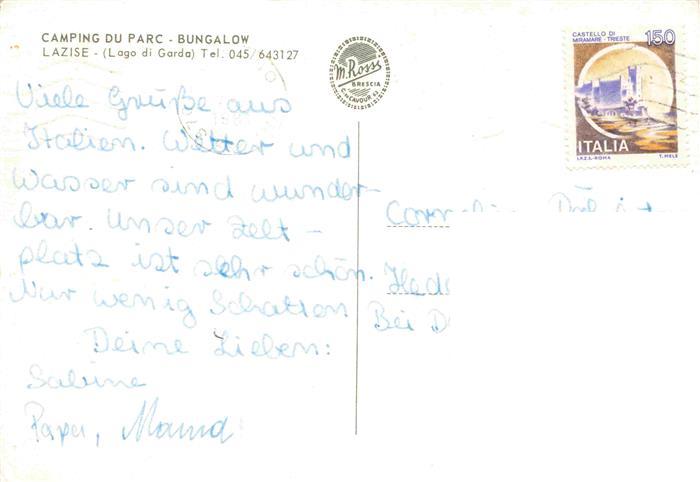 CAMPING DU PARC - BUNGALOW
LAZISE - (Lago di Garda) Tel. 045/643127
M. Rossi
BRESCIA
CASTELLO DI
MIRAMARE - TRIESTE
150
ITALIA
I.P.Z.S.-ROMA T. MELE
Viele Grüße aus
Italien. Wetter und
Wasser sind wunder-
bar. Unser Zelt-
platz ist sehr schön.
Nur wenig Schatten
Deine Lieben:
Sabine
Papa, Mama
Bei